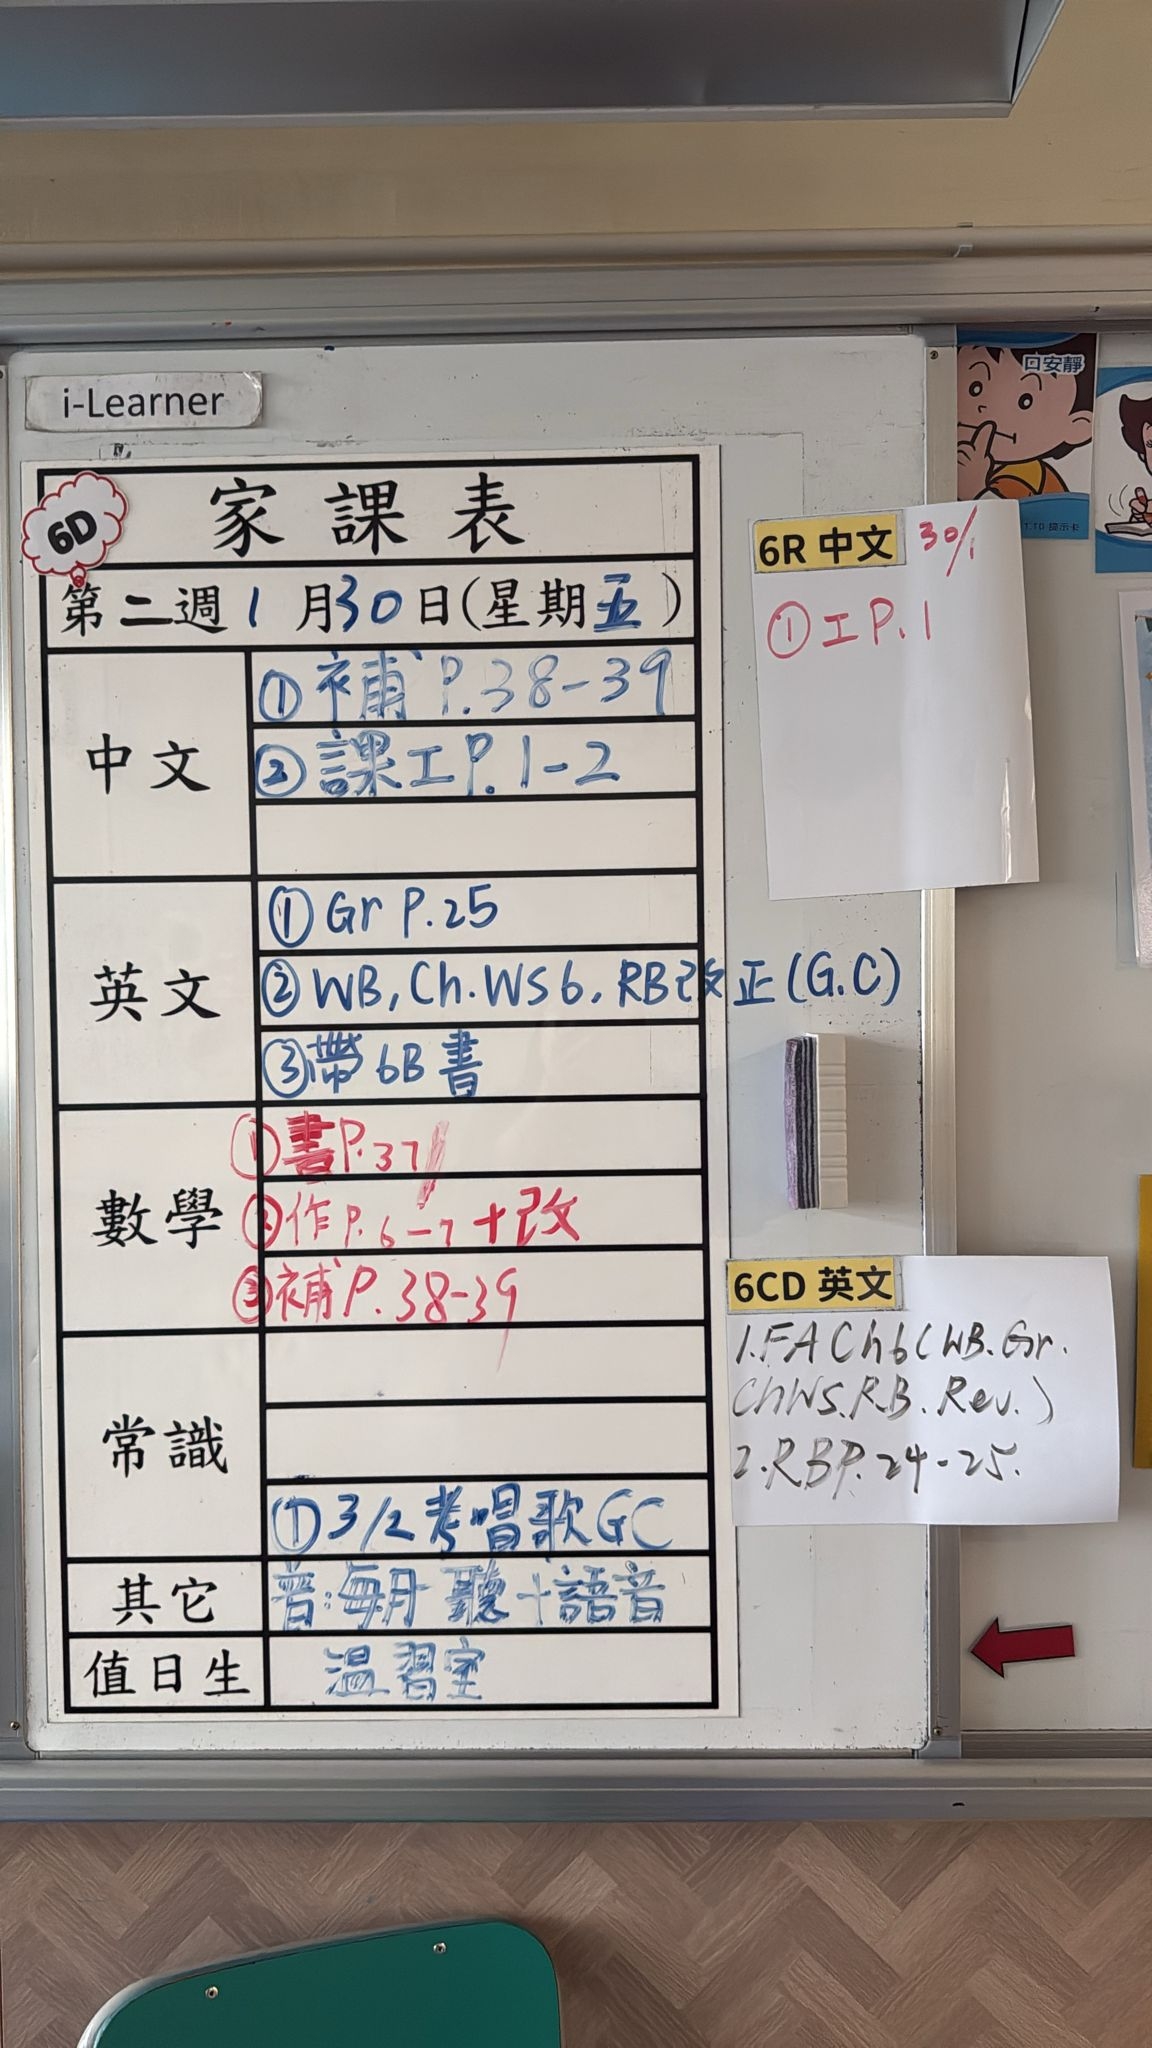 i-Learner
6D
家課表
第二週 1月30日(星期五)
中文
① 補 P.38-39
② 課工P.1-2
英文
① Gr P.25
② WB, Ch.WS6, RB改正(G.C)
③ 帶6B書
數學
① 書P.37
② 作P.6-7+改
③ 補P.38-39
常識
① 3/2考唱歌GC
其它
普:每月聽+語音
值日生
溫習室
口安靜
1.10 提示卡
6R 中文 30/1
① 工P.1
6CD 英文
1.FA Ch6(WB.Gr.
ChWS.RB.Rev.)
2.RBP.24-25.